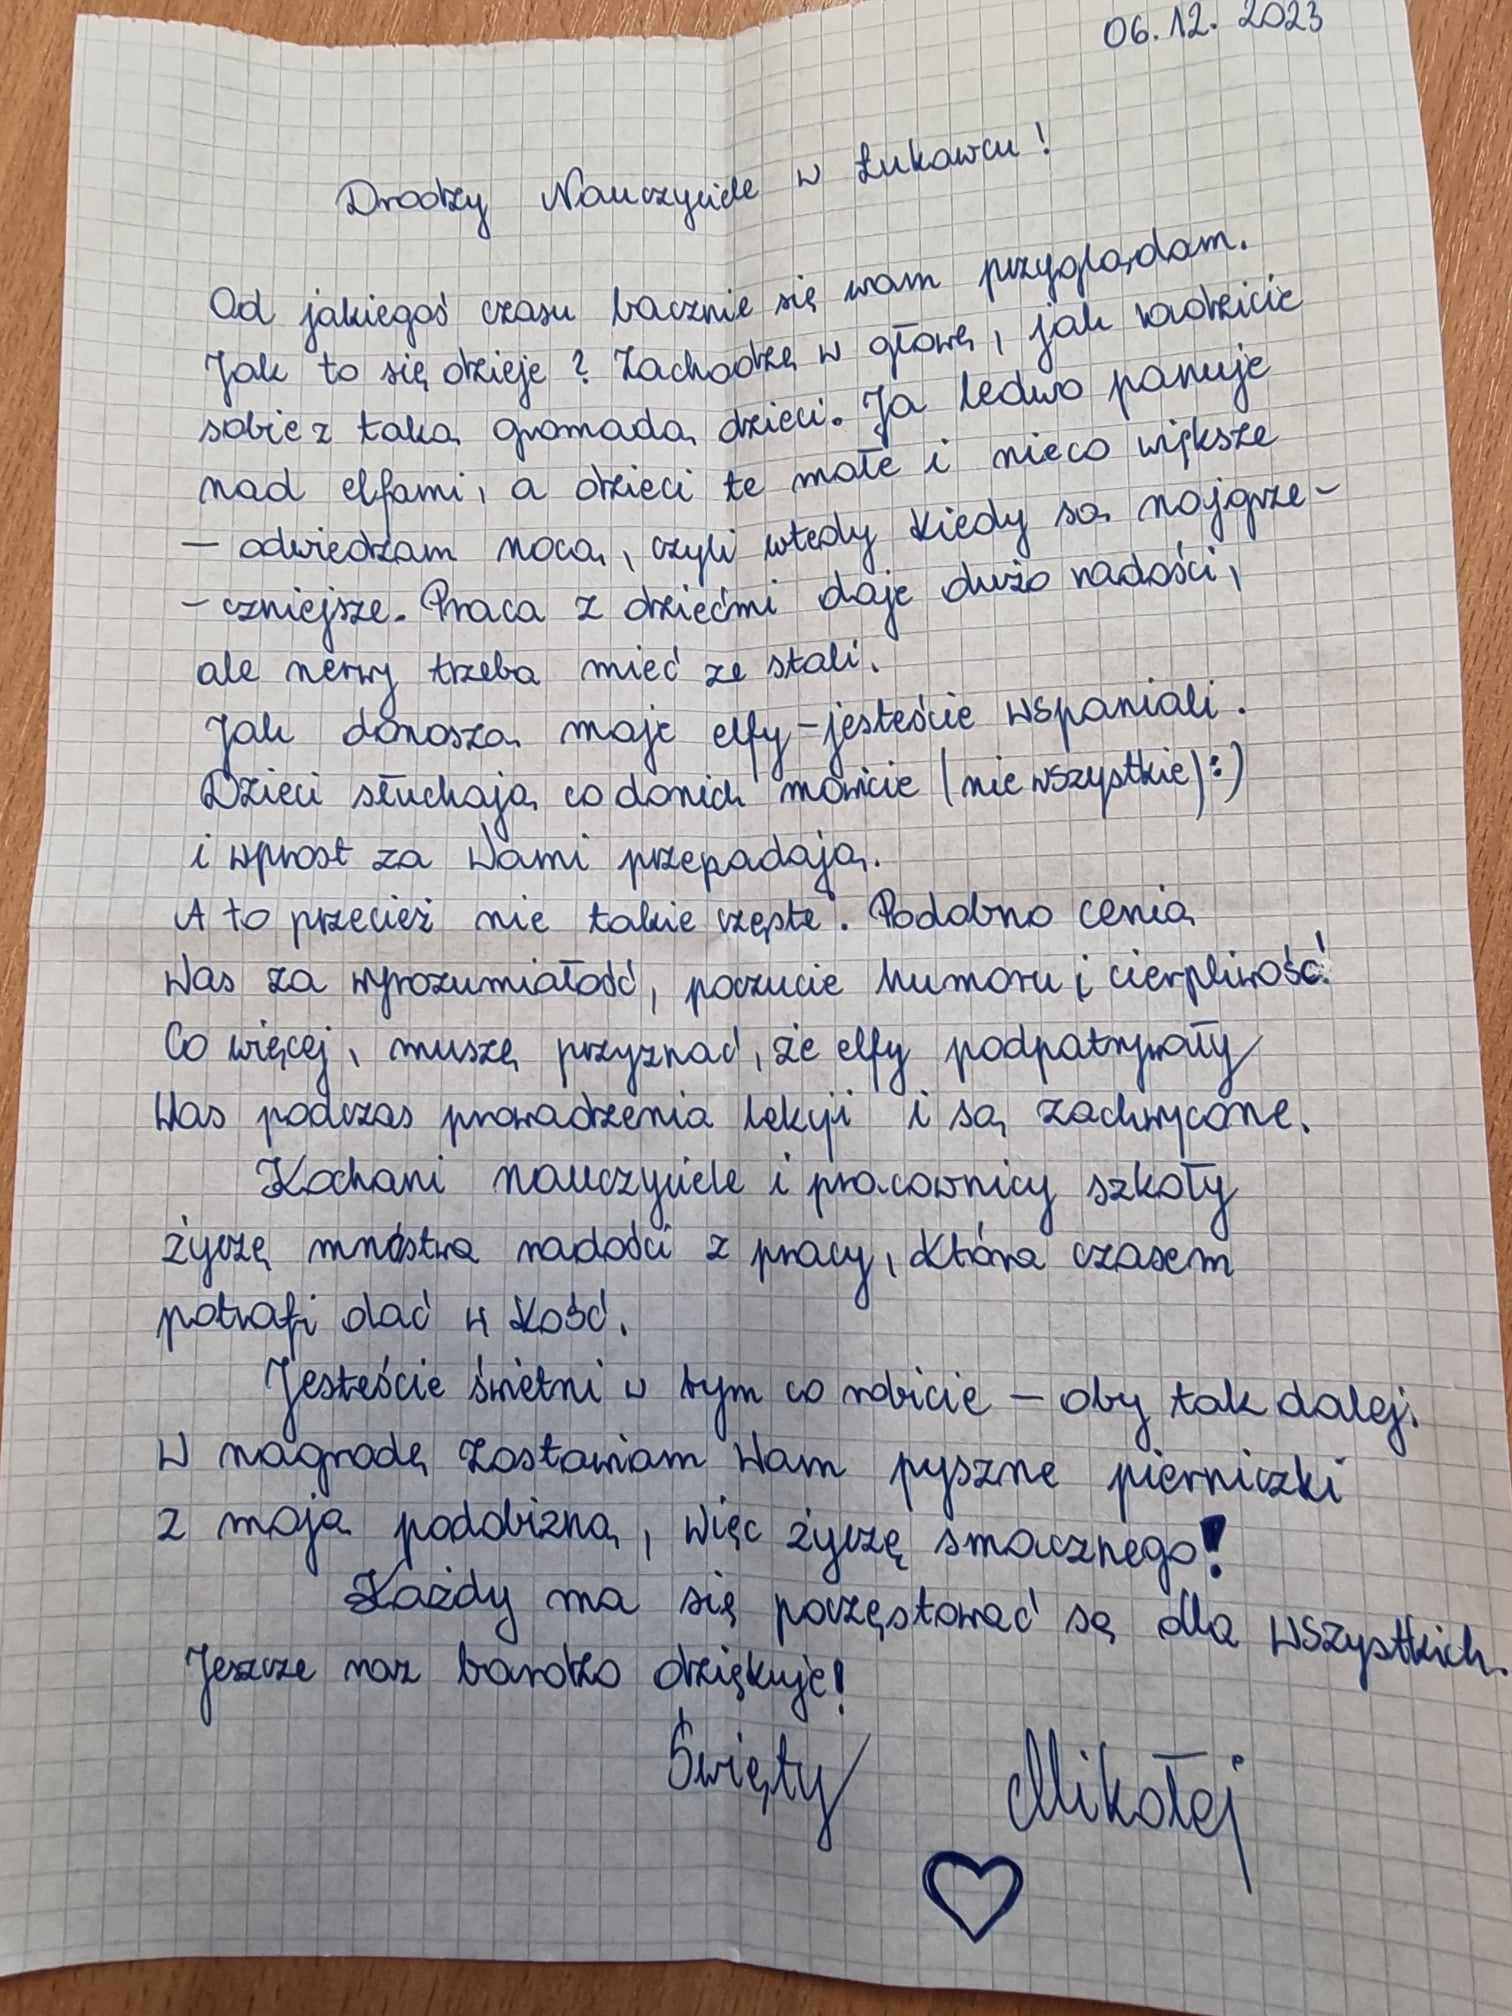 06.12.2023
Drodzy Nauczyciele w Łukawcu!
Od jakiegoś czasu bacznie się wam przyglądam.
Jak to się dzieje? Zachodzę w głowę, jak radzicie
sobie z taką gromadą dzieci. Ja ledwo panuje
nad elfami, a dzieci te małe i nieco większe
- odwiedzam nocą, czyli wtedy kiedy są najgrze-
- czniejsze. Praca z dziećmi daje dużo radości,
ale nerwy trzeba mieć ze stali.
Jak donoszą moje elfy - jesteście wspaniali.
Dzieci słuchają co donich mówicie (nie wszystkie) :)
i wprost za Wami przepadają.
A to przecież nie takie częste. Podobno cenią
Was za wyrozumiałość, poczucie humoru i cierpliwość!
Co więcej, muszę przyznać, że elfy podpatrywały
Was podczas prowadzenia lekcji i są zachwycone.
Kochani nauczyciele i pracownicy szkoły
życzę mnóstwa radości z pracy, która czasem
potrafi dać w kość.
Jesteście świetni w tym co robicie - oby tak dalej.
W nagrodę zostawiam Wam pyszne pierniczki
z moją podobizną, więc życzę smacznego!
Każdy ma się poczęstować są dla wszystkich.
Jeszcze raz bardzo dziękuję!
Święty Mikołej